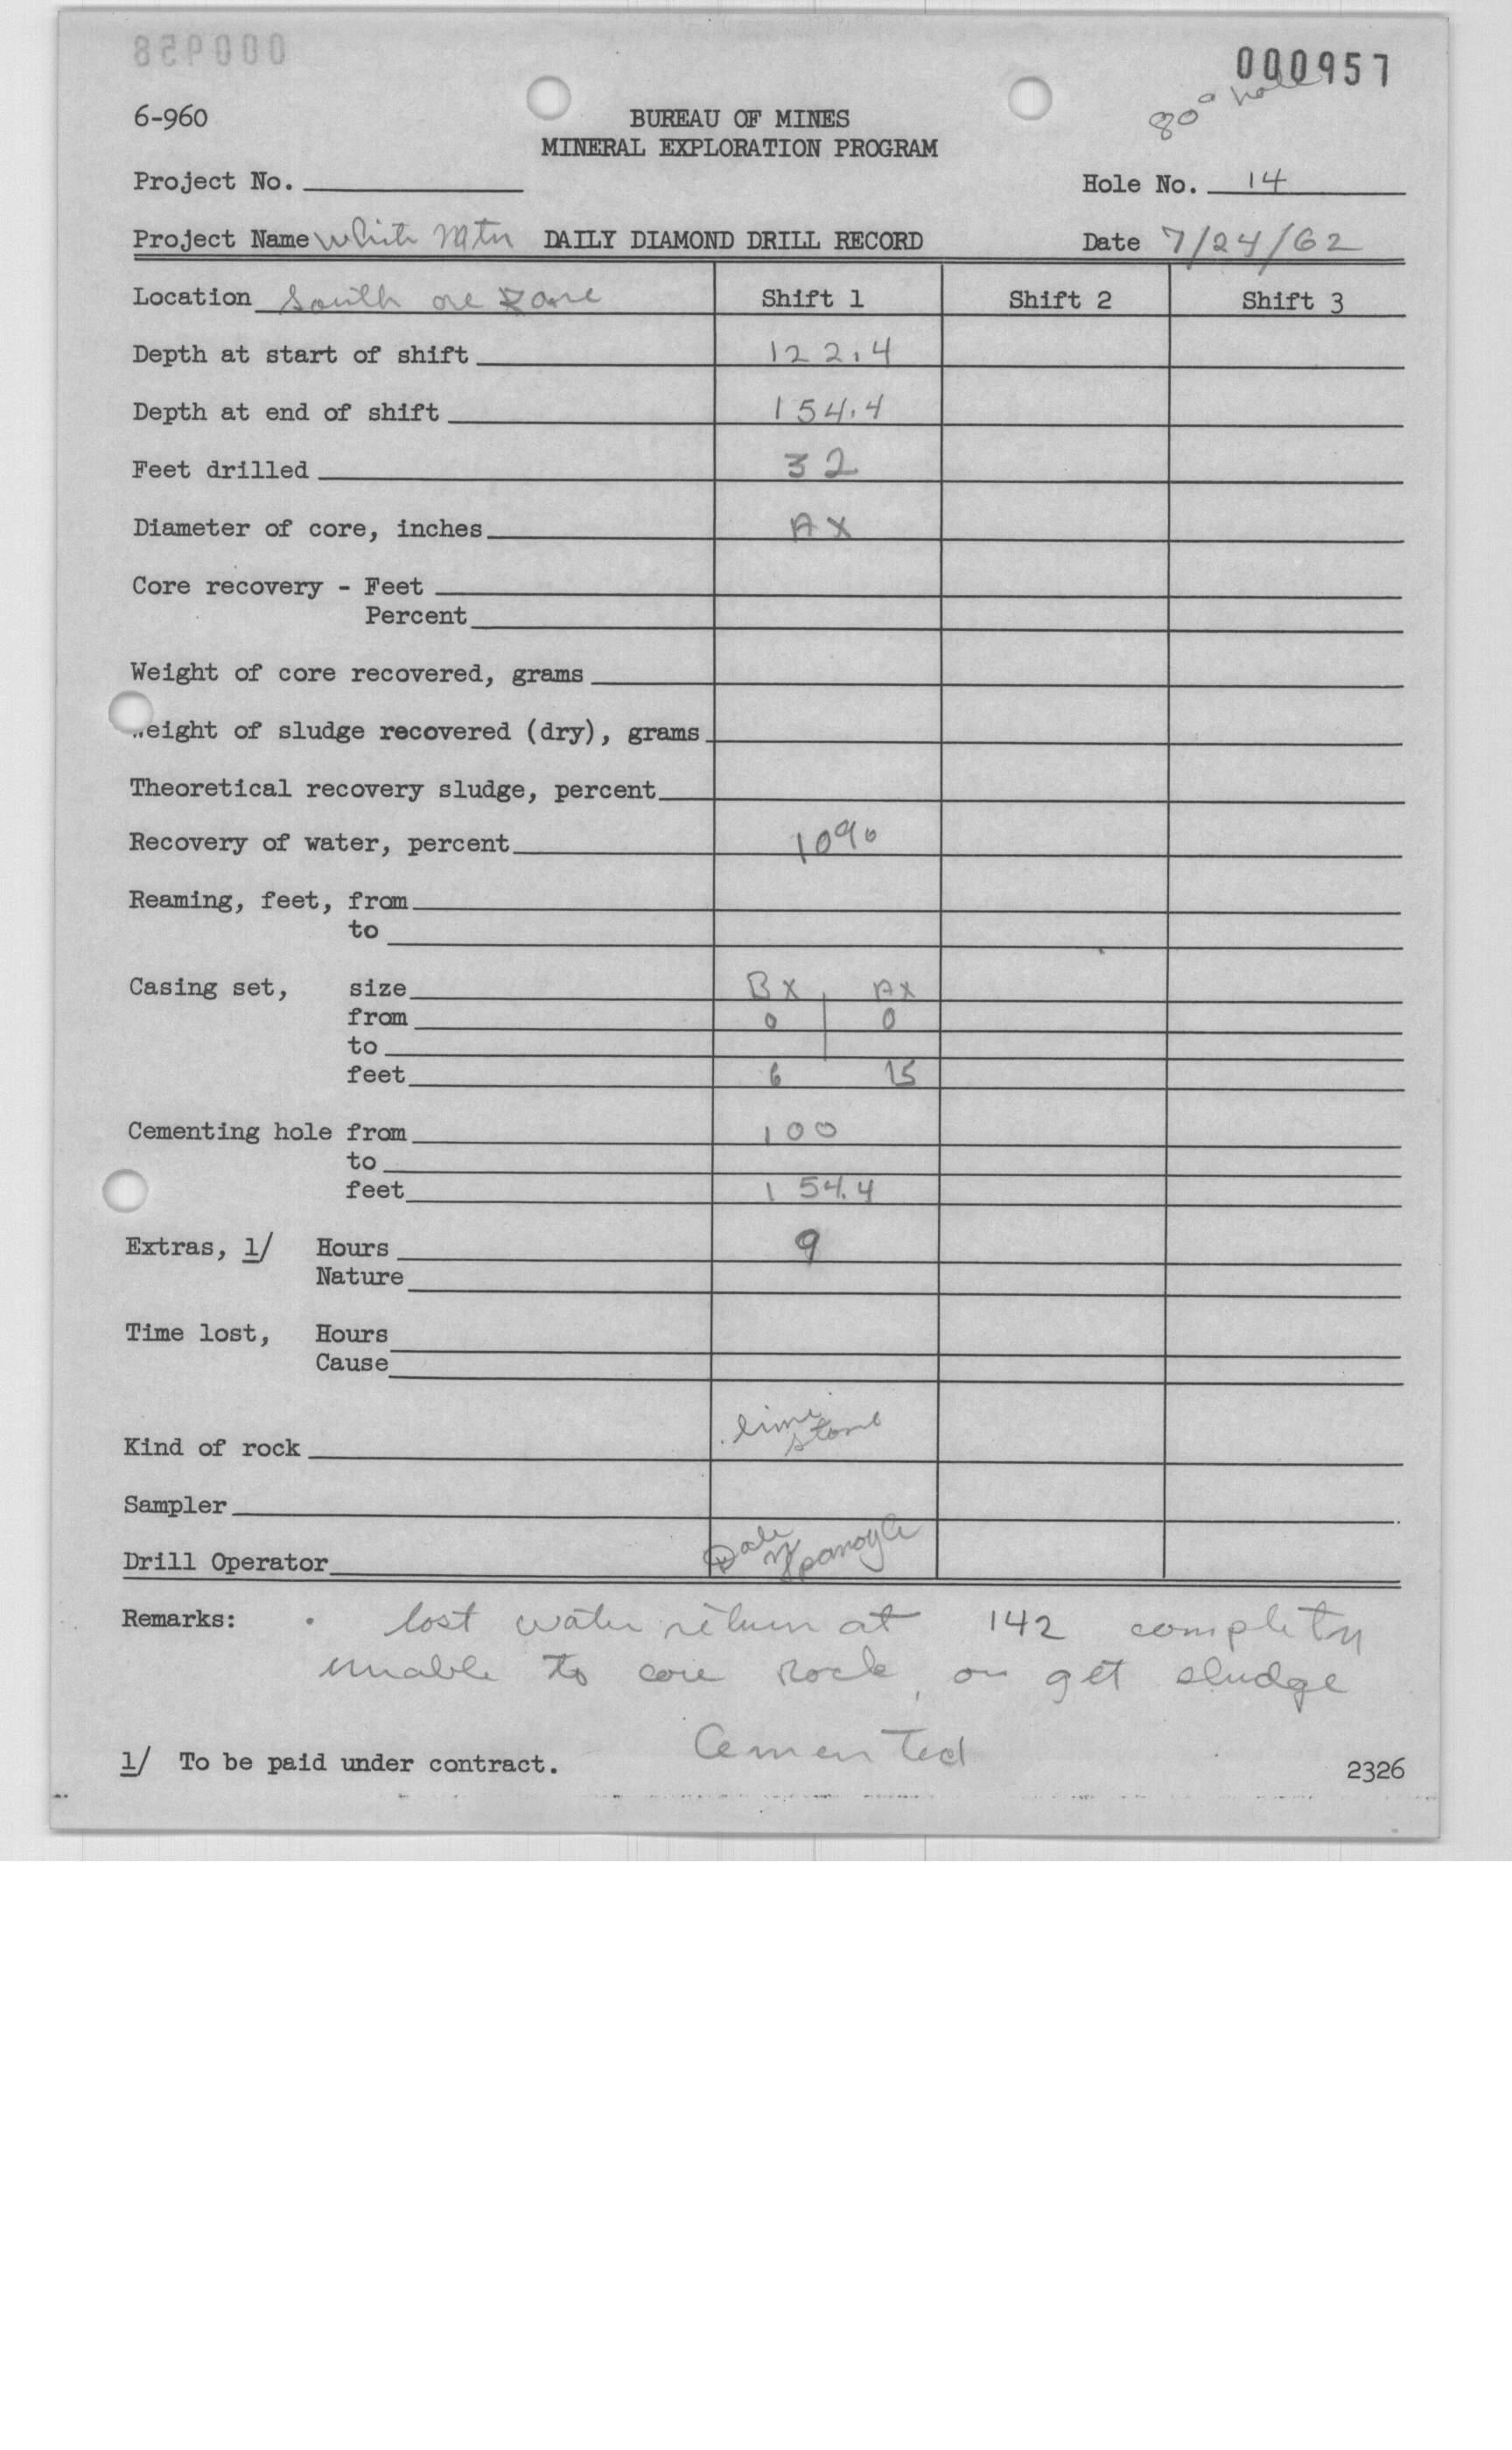 000957
80° hole
6-960
BUREAU OF MINES
MINERAL EXPLORATION PROGRAM
Project No.
Hole No. 14
Project Name White Mtn DAILY DIAMOND DRILL RECORD Date 7/24/62
Location South ore zone Shift 1 Shift 2 Shift 3
Depth at start of shift 122.4
Depth at end of shift 154.4
Feet drilled 32
Diameter of core, inches AX
Core recovery - Feet
Percent
Weight of core recovered, grams
Weight of sludge recovered (dry), grams
Theoretical recovery sludge, percent
Recovery of water, percent 10%
Reaming, feet, from
to
Casing set, size BX AX
from 0 0
to
feet 6 15
Cementing hole from 100
to
feet 154.4
Extras, 1/ Hours 9
Nature
Time lost, Hours
Cause
Kind of rock lime stone
Sampler
Drill Operator Dale
Remarks: lost water return at 142 completly
unable to core rock, or get sludge
Cemented
1/ To be paid under contract. 2326